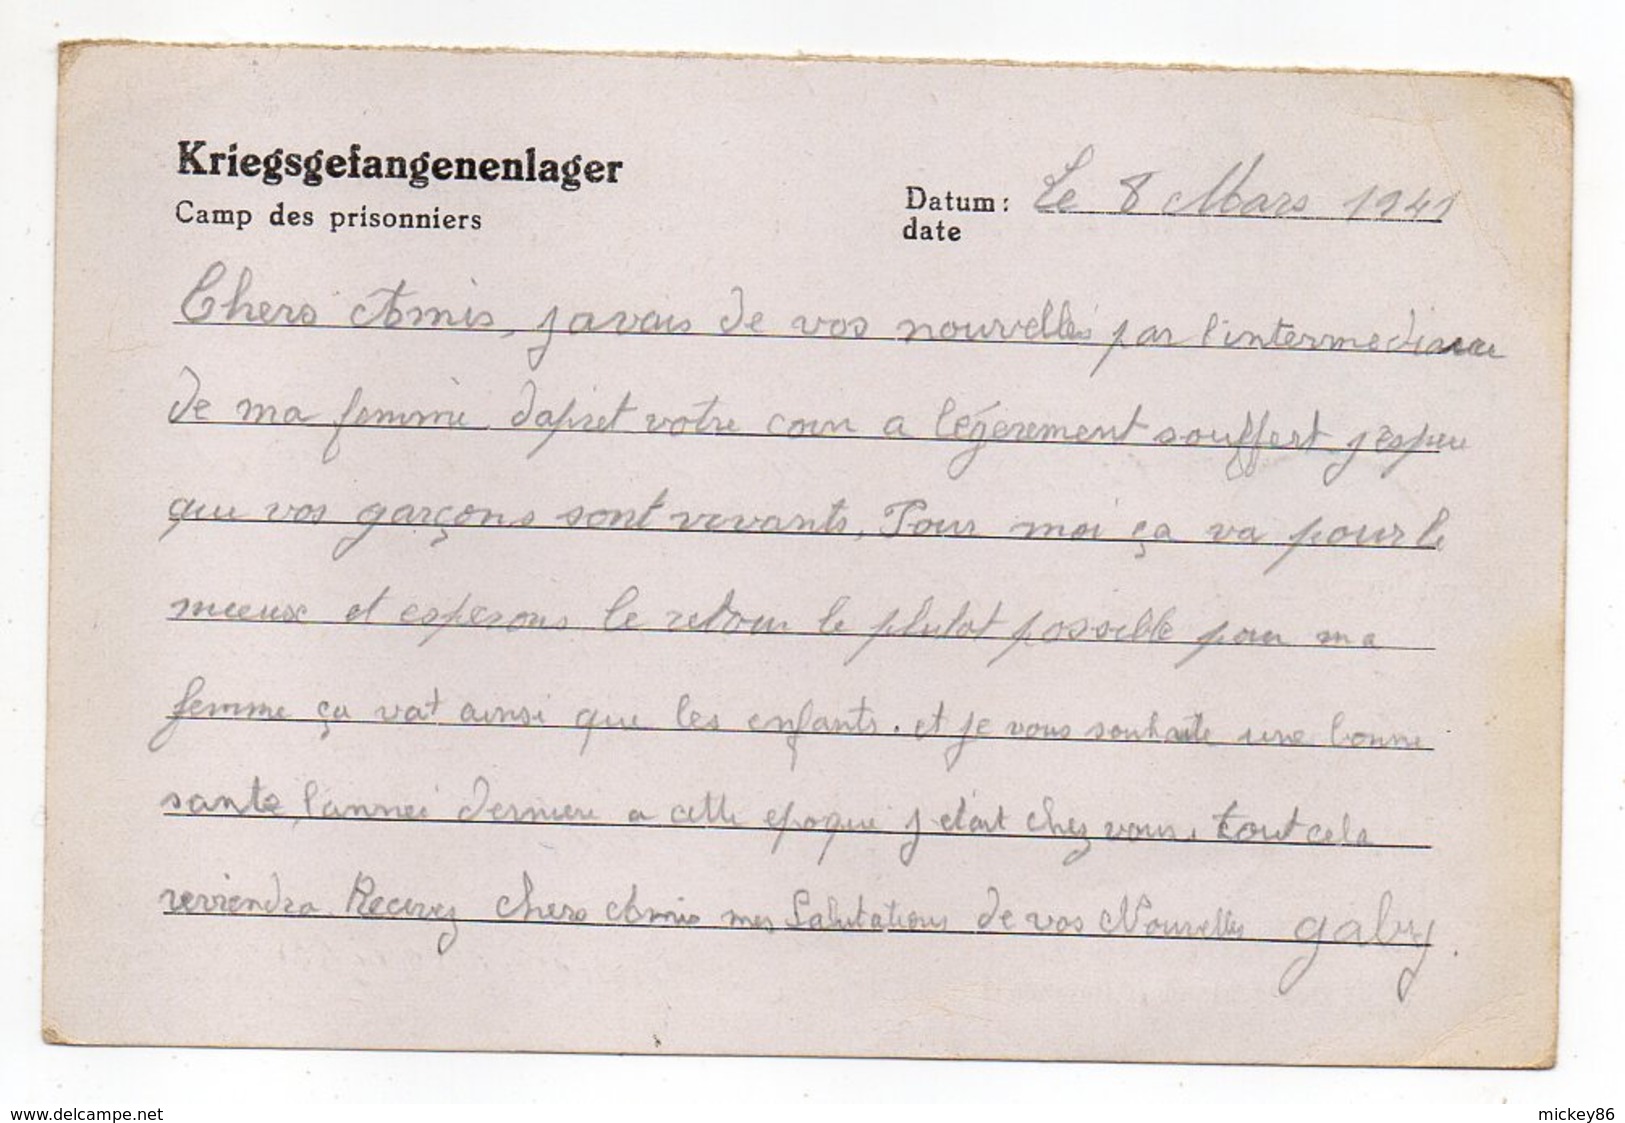 Kriegsgefangenenlager
Camp des prisonniers
Datum: Le 8 Mars 1941
date
Chers Amis, javais de vos nouvelles par l'intermediaire
de ma femme, dapret votre coin a légerement souffert j'éspere
que vos garçons sont vivants, Pour moi ça va pour le
mieux et esperons le retour le plutot possible pour ma
femme ça vat ainsi que les enfants. et je vous souhaite une bonne
sante, l'année derniere a cette epoque j'etait chez vous, tout cela
reviendra. Recevez chers Amis mes Salutations de vos Nouvelles gaby.
www.delcampe.net
mickey86